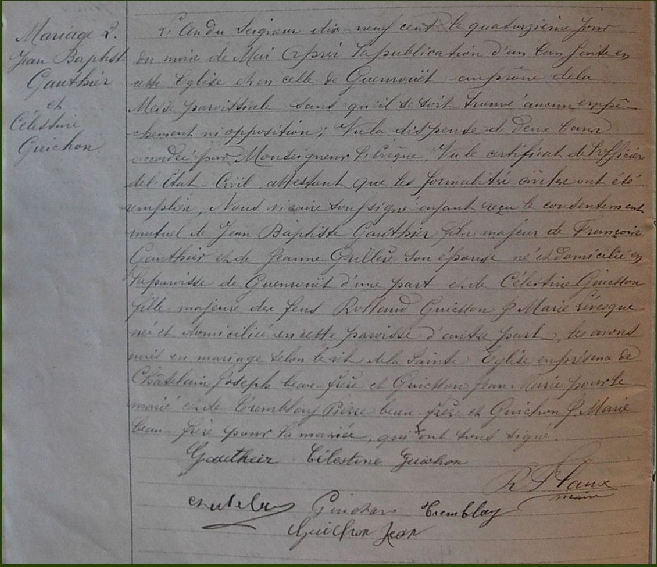 Mariage 2.
Jean Baptiste
Gauthier
et
Célestine
Guichon
L'an du Seigneur dix neuf cent le quatorzième jour
du mois de Mai après la publication d'un ban faite en
cette Eglise et en celle de Guenrouët au prône de la
Messe paroissiale sans qu'il se soit trouvé aucun empê-
chement ni opposition; Vu la dispense de deux bans
accordée par Monseigneur l'Evêque Vu le certificat de l'officier
de l'Etat Civil attestant que les formalités civiles ont été
remplies, Nous vicaire soussigné ayant reçu le consentement
mutuel de Jean Baptiste Gauthier fils majeur de François
Gauthier et de Jeanne son épouse né et domicilié en
la paroisse de Guenrouët d'une part et de Célestine Guichon
fille majeure des feus Rolland Guichon & Marie Lévesque
née et domiciliée en cette paroisse d'autre part, les avons
unis en mariage selon le rit de la Sainte Eglise en présence de
Chatelain Joseph beau-frère et Guichon Jean Marie pour le
marié et de Tremblay Pierre beau-frère et Guichon J. Marie
beau-frère pour la mariée, qui ont tous signé.
Gautheir Célestine Guichon
Guichon Tremblay
Guichon Jean